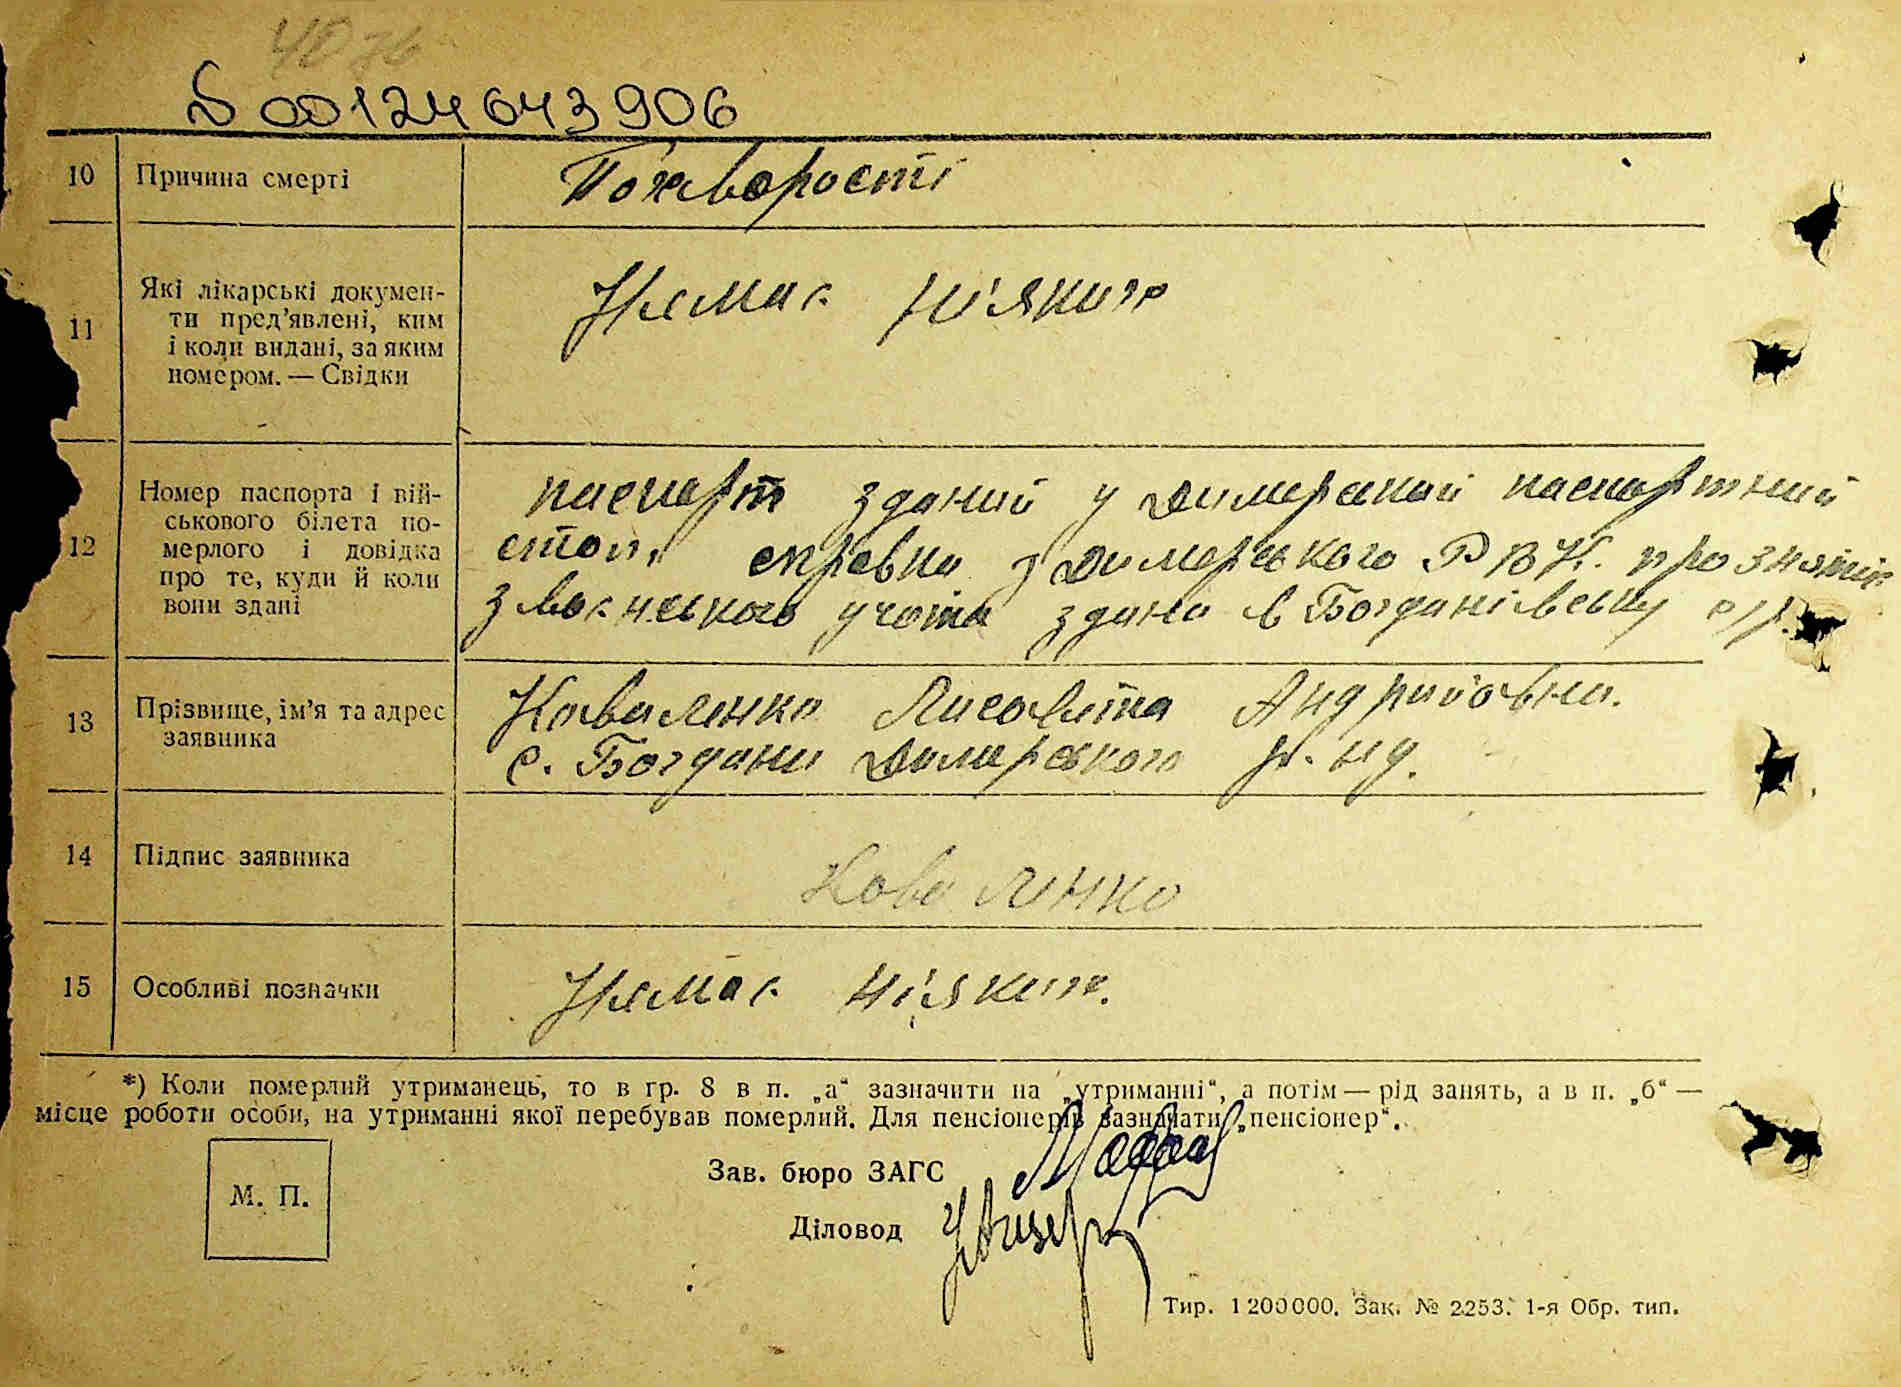 S 00124643906
10 Причина смерті По хворості
11 Які лікарські докумен-
ти пред’явлені, ким
і коли видані, за яким
номером. — Свідки
Немає ніяких
12 Номер паспорта і вій-
ськового білета по-
мерлого і довідка
про те, куди й коли
вони здані
паспорт зданий у Димерский паспортний
стол, справка з Димерського Р В К. про зняття
з воєнського учота здана в Богданівську с/р.
13 Прізвище, ім’я та адрес
заявника
Коваленко Лисовета Андрийовна.
с. Богдани Димерського р. ну.
14 Підпис заявника Коваленко
15 Особливі позначки Немає ніяких.
*) Коли померлий утриманець, то в гр. 8 в п. „а“ зазначити на „утриманні“, а потім — рід занять, а в п. „б“ —
місце роботи особи, на утриманні якої перебував померлий. Для пенсіонерів зазначати „пенсіонер“.
Зав. бюро ЗАГС
М. П.
Діловод
Тир. 1 200 000. Зак. № 2253. 1-я Обр. тип.